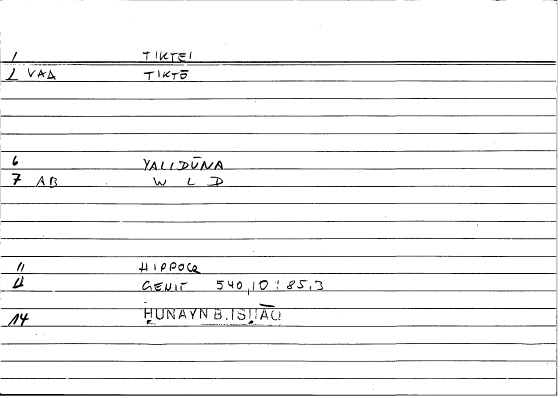 1 TIKTEI
2 VAΔ TIKTŌ
6 YALIDŪNA
7 AB W L D
11 HIPPOCR
GENIT 540,10 : 85,3
14 ḤUNAYN B. ISḤĀQ